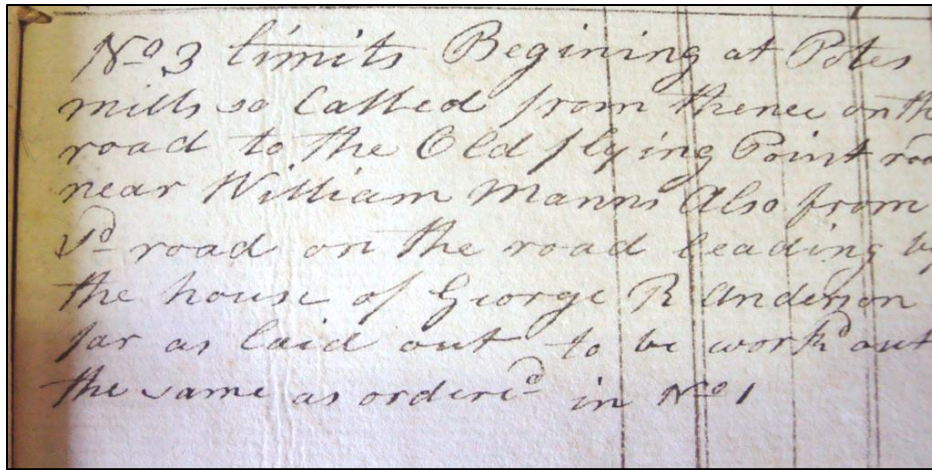 No 3 limits Begining at Potes
mills so Called from thence on th
road to the Old flying Point roa
near William Manns Also from
sd road on the road leading by
the house of George R Anderson
far as laid out to be workd out
the same as orderd in No 1